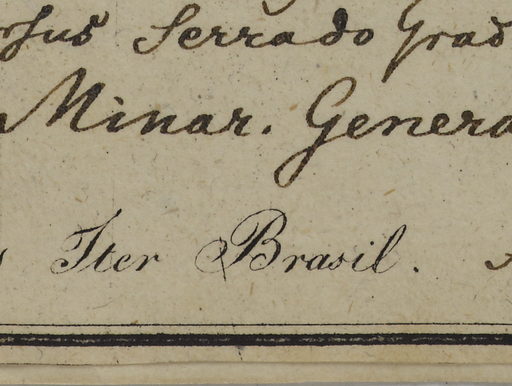 Serrado Grad
Minar. Genera
Iter Brasil.